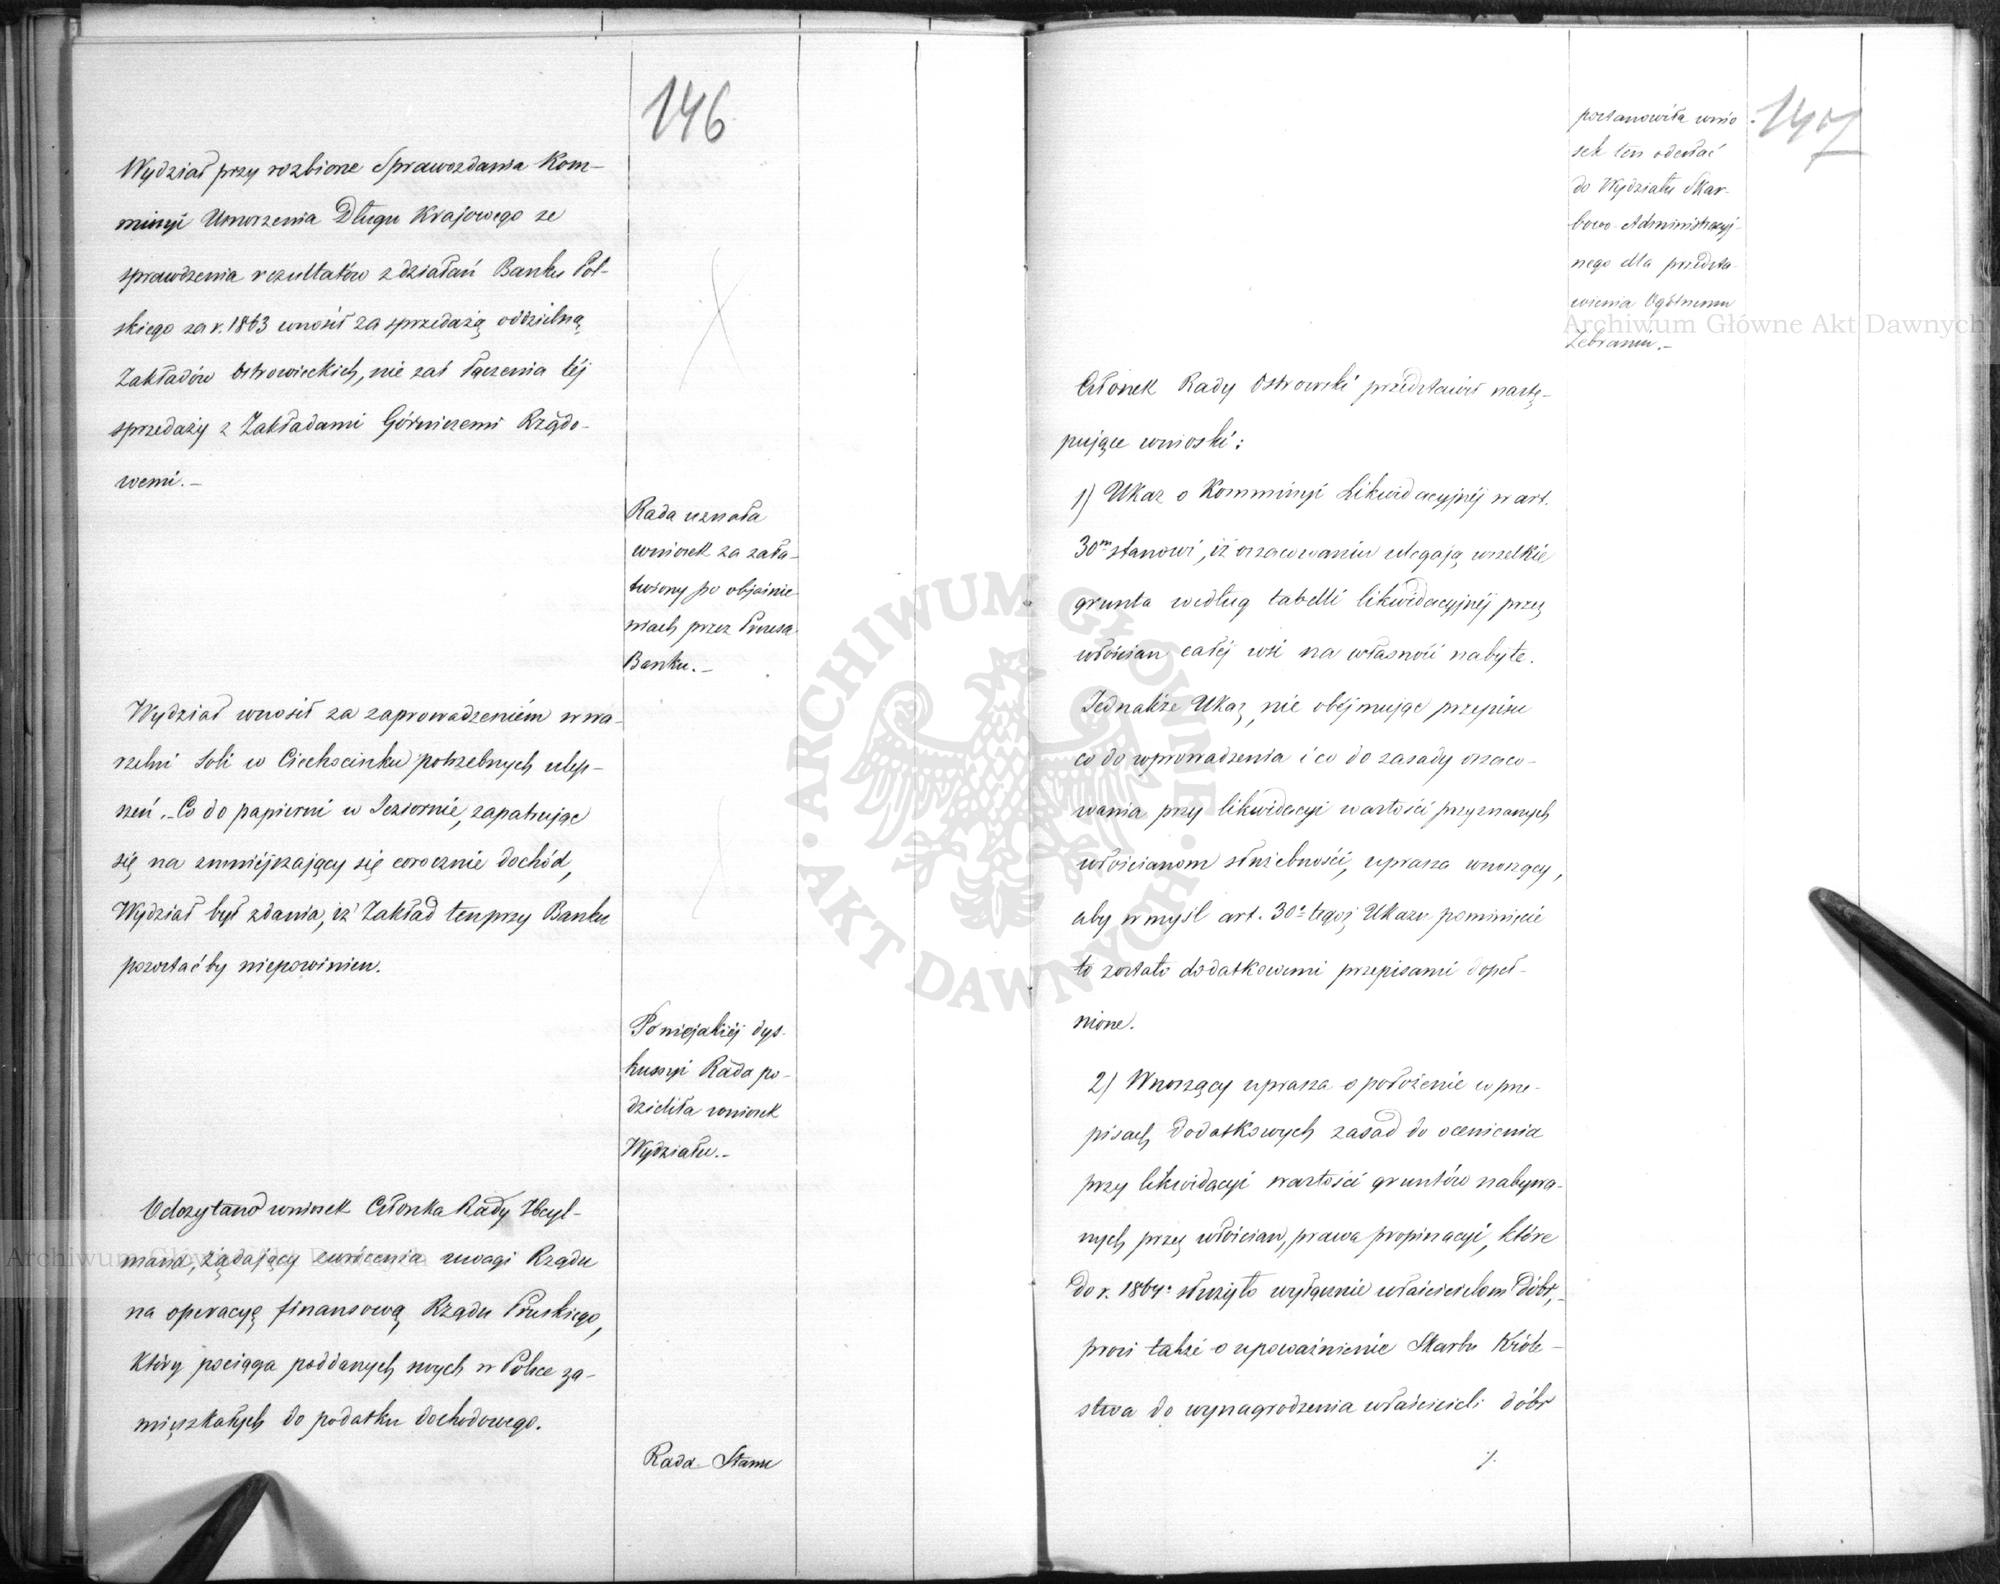 146
Wydział przy rozbiorze Sprawozdania Kom-
missyi Umorzenia Długu Krajowego ze
sprawdzenia rezultatów z działań Banku Pol-
skiego za r. 1863 wnosił za sprzedażą oddzielną
Zakładów Ostrowieckich, nie zaś łączenia téj
sprzedaży z Zakładami Górniczemi Rządo-
wemi.–
Rada uznała
wniosek za zała-
twiony po objaśnie-
niach przez Prezesa
Banku.–
Wydział wnosił za zaprowadzeniem w wa-
rzelni Soli w Ciechocinku potrzebnych ulep-
szeń.– Co do papierni w Jeziornie, zapatrując
się na zmniéjszający się corocznie dochód,
Wydział był zdania, iż Zakład ten przy Banku
pozostać by niepowinien.
Po niejakiéj dys-
kussyi Rada po-
dzieliła wniosek
Wydziału.–
Odczytano wniosek Członka Rady Heyl-
mana, żądający zwrócenia uwagi Rządu
na operacyę finansową Rządu Pruskiego,
który pociąga poddanych swych w Polsce za-
mięszkałych do podatku dochodowego.
Rada Stanu
147
postanowiła wnio-
sek ten odesłać
do Wydziału Skar-
bowo-Administracyj-
nego dla przedsta-
wienia Ogólnemu
Zebraniu.–
Członek Rady Ostrowski przedstawił nastę-
pujące wnioski:
1) Ukaz o Kommissyi Likwidacyjnéj w art.
30m stanowi, iż oszacowaniu ulegają wszelkie
grunta według tabelli likwidacyjnéj przez
włościan całéj wsi na własność nabyte.
Jednakże Ukaz, nie obéjmując przepisu
co do wprowadzenia i co do zasady oszaco-
wania przy likwidacyi wartości przyznanych
włościanom służebności, uprasza wnoszący,
aby w myśl art. 30o tegoż Ukazu pominięcie
to zostało dodatkowemi przepisami dopeł-
nione.
2) Wnoszący uprasza o położenie w prze-
pisach dodatkowych zasad do ocenienia
przy likwidacyi wartości gruntów nabywa-
nych przez włościan, prawa propinacyi, które
do r. 1864o służyło wyłącznie właścicielom dóbr,
prosi także o upoważnienie Skarbu Króle-
stwa do wynagrodzenia właścicieli dóbr
./.
Archiwum Główne Akt Dawnych
Archiwum Główne Akt Dawnych
ARCHIWUM GŁÓWNE AKT DAWNYCH